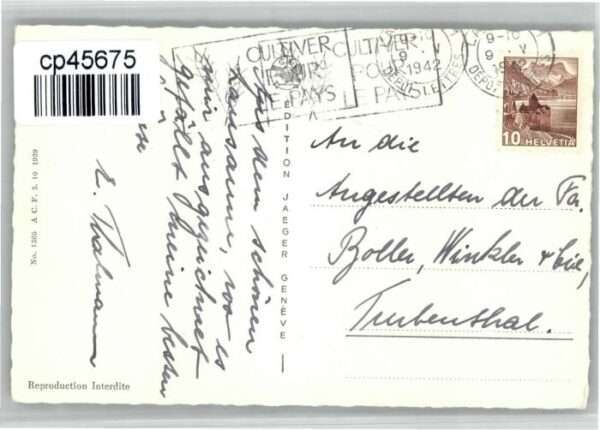 cp45675
CULTIVER CULTIVER
POUR
LE PAYS LE PAYS
9-10
9 V
1942
9-10
9 V
DEPOT
10 HELVETIA
Aus dem schönen
Lausanne, wo es
mir ausgezeichnet
gefällt meine besten
E. Thalmann
EDITION JAEGER GENÈVE
An die
Angestellten der Fa.
Boller, Winkler & Cie,
Turbenthal.
No. 1265 A C. F. 3. 10 1939
Reproduction Interdite